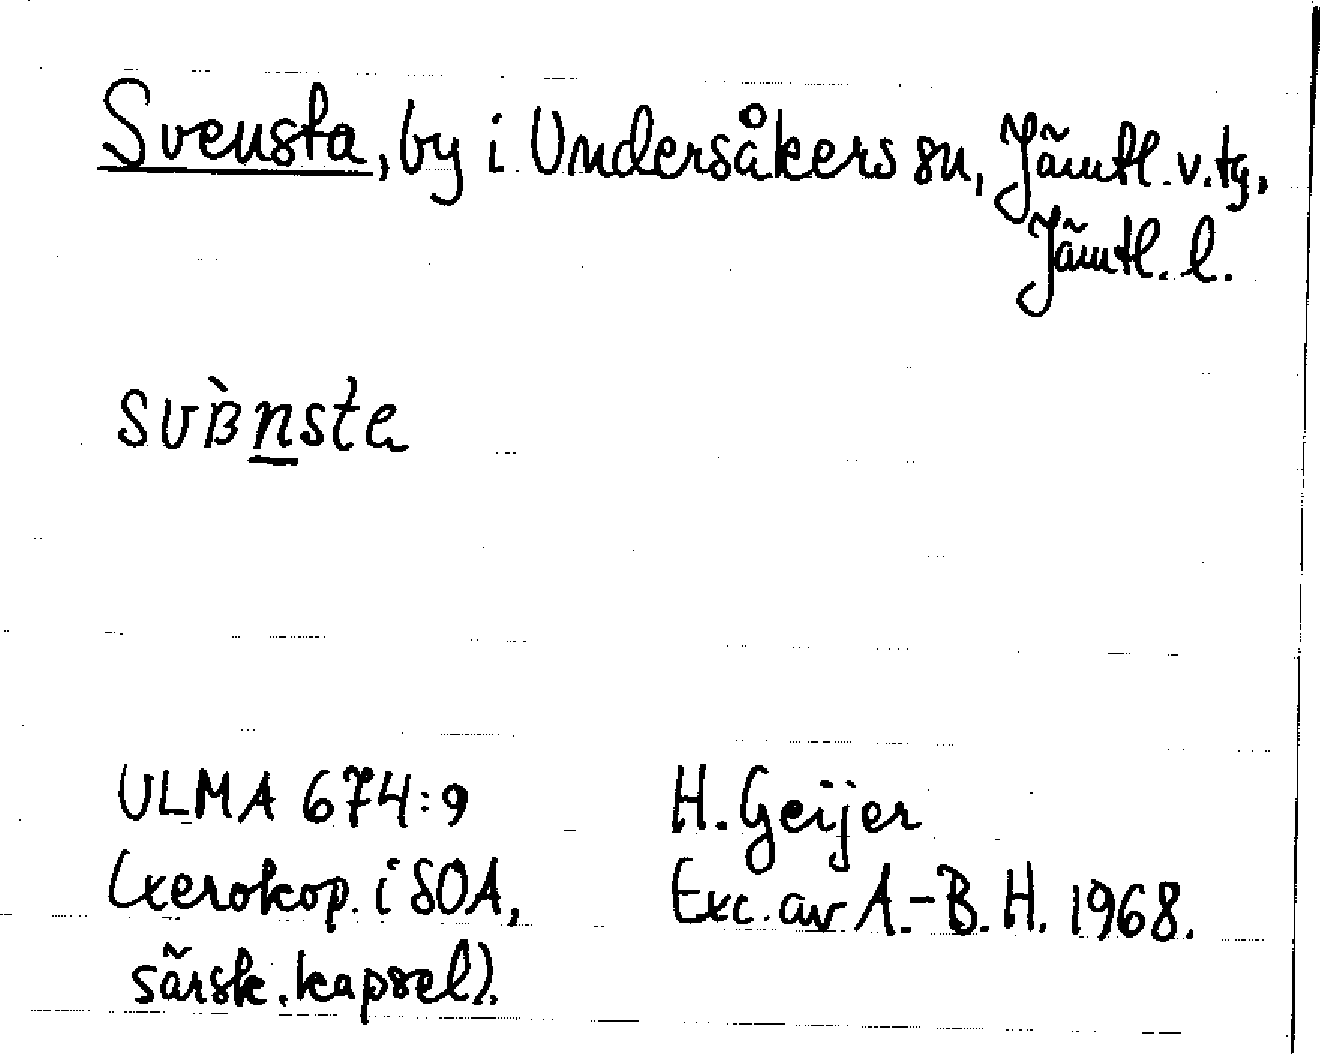 Svensta, by i Undersåkers sn, Jämtl. v. tg,
Jämtl. l.
svʙ̀n̲sta
ULMA 674:9
(xerokop. i SOA,
särsk. kapsel).
H. Geijer
Exc. av A.-B. H. 1968.